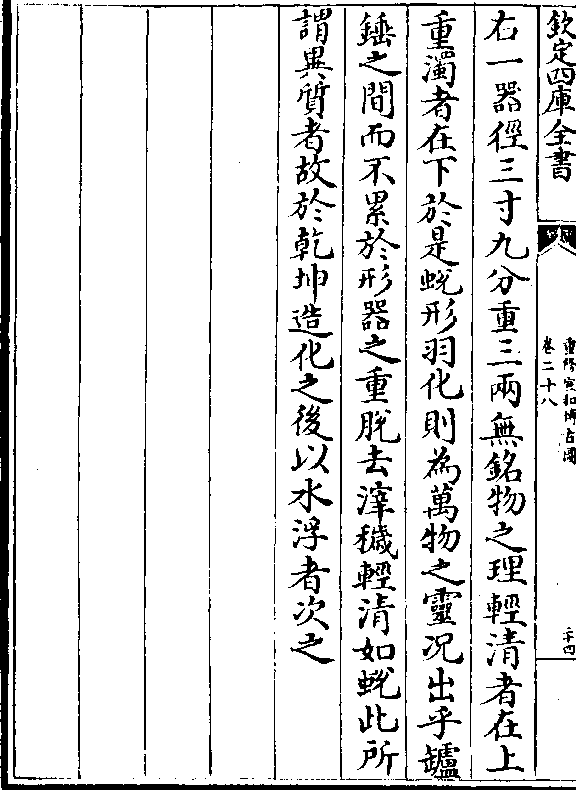 欽定四庫全書
重修宣和博古圖
卷二十八
二十四
右一器徑三寸九分重三兩無銘物之理輕清者在上
重濁者在下於是蛻形羽化則為萬物之靈况出乎鑪
錘之間而不累於形器之重脫去滓穢輕清如蛻此所
謂異質者故於乾坤造化之後以水浮者次之